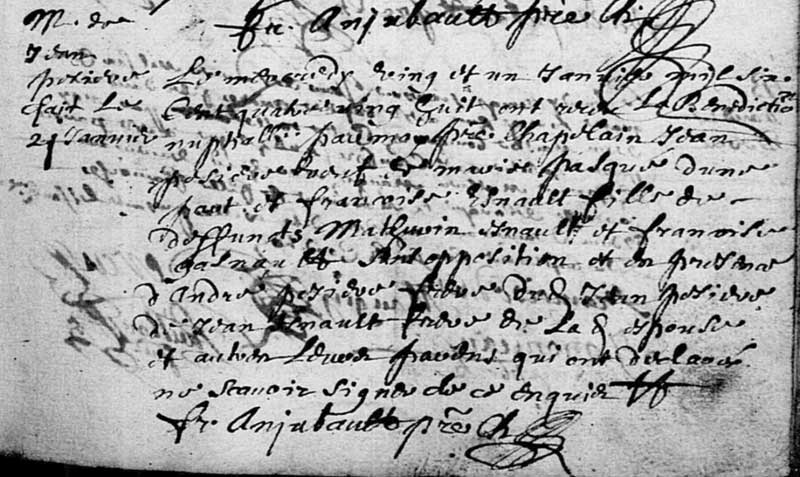 fr. Anjubault pbre Ch
M. de
Jean
periere
fait le
21 Januier
Le mercredy vingt et un Januier mil six
cent quatre vingt huit ont receu La Benedictio
nuptialle par moy pbre Chapelain Jean
periere veuf de marie pasque dune
part et francoise Esnault fille de
deffuncts Mathurin Esnault et francoise
gasnault sans opposition et en presence
dandre periere frere dud Jean periere
de Jean Esnault frere de Lad espouse
et autres Leurs parens qui ont declaré
ne scauoir signer de ce enquis
fr. Anjubault pbre Ch